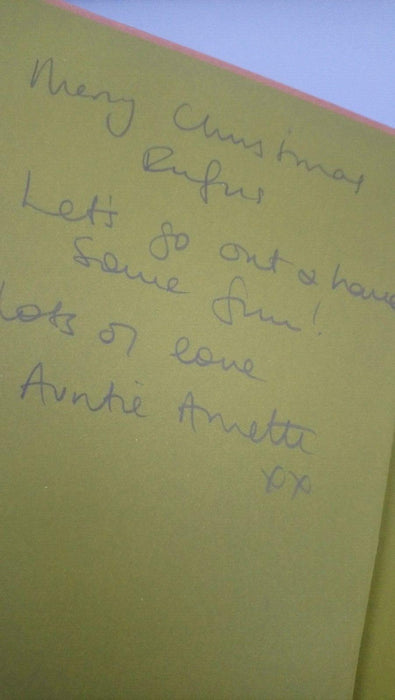 Merry Christmas
Rufus
Let's go out & have
some fun!
Lots of love
Auntie Annette
xx